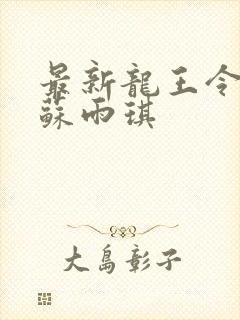 最新龍王令
蘇雨琪
大島彰子